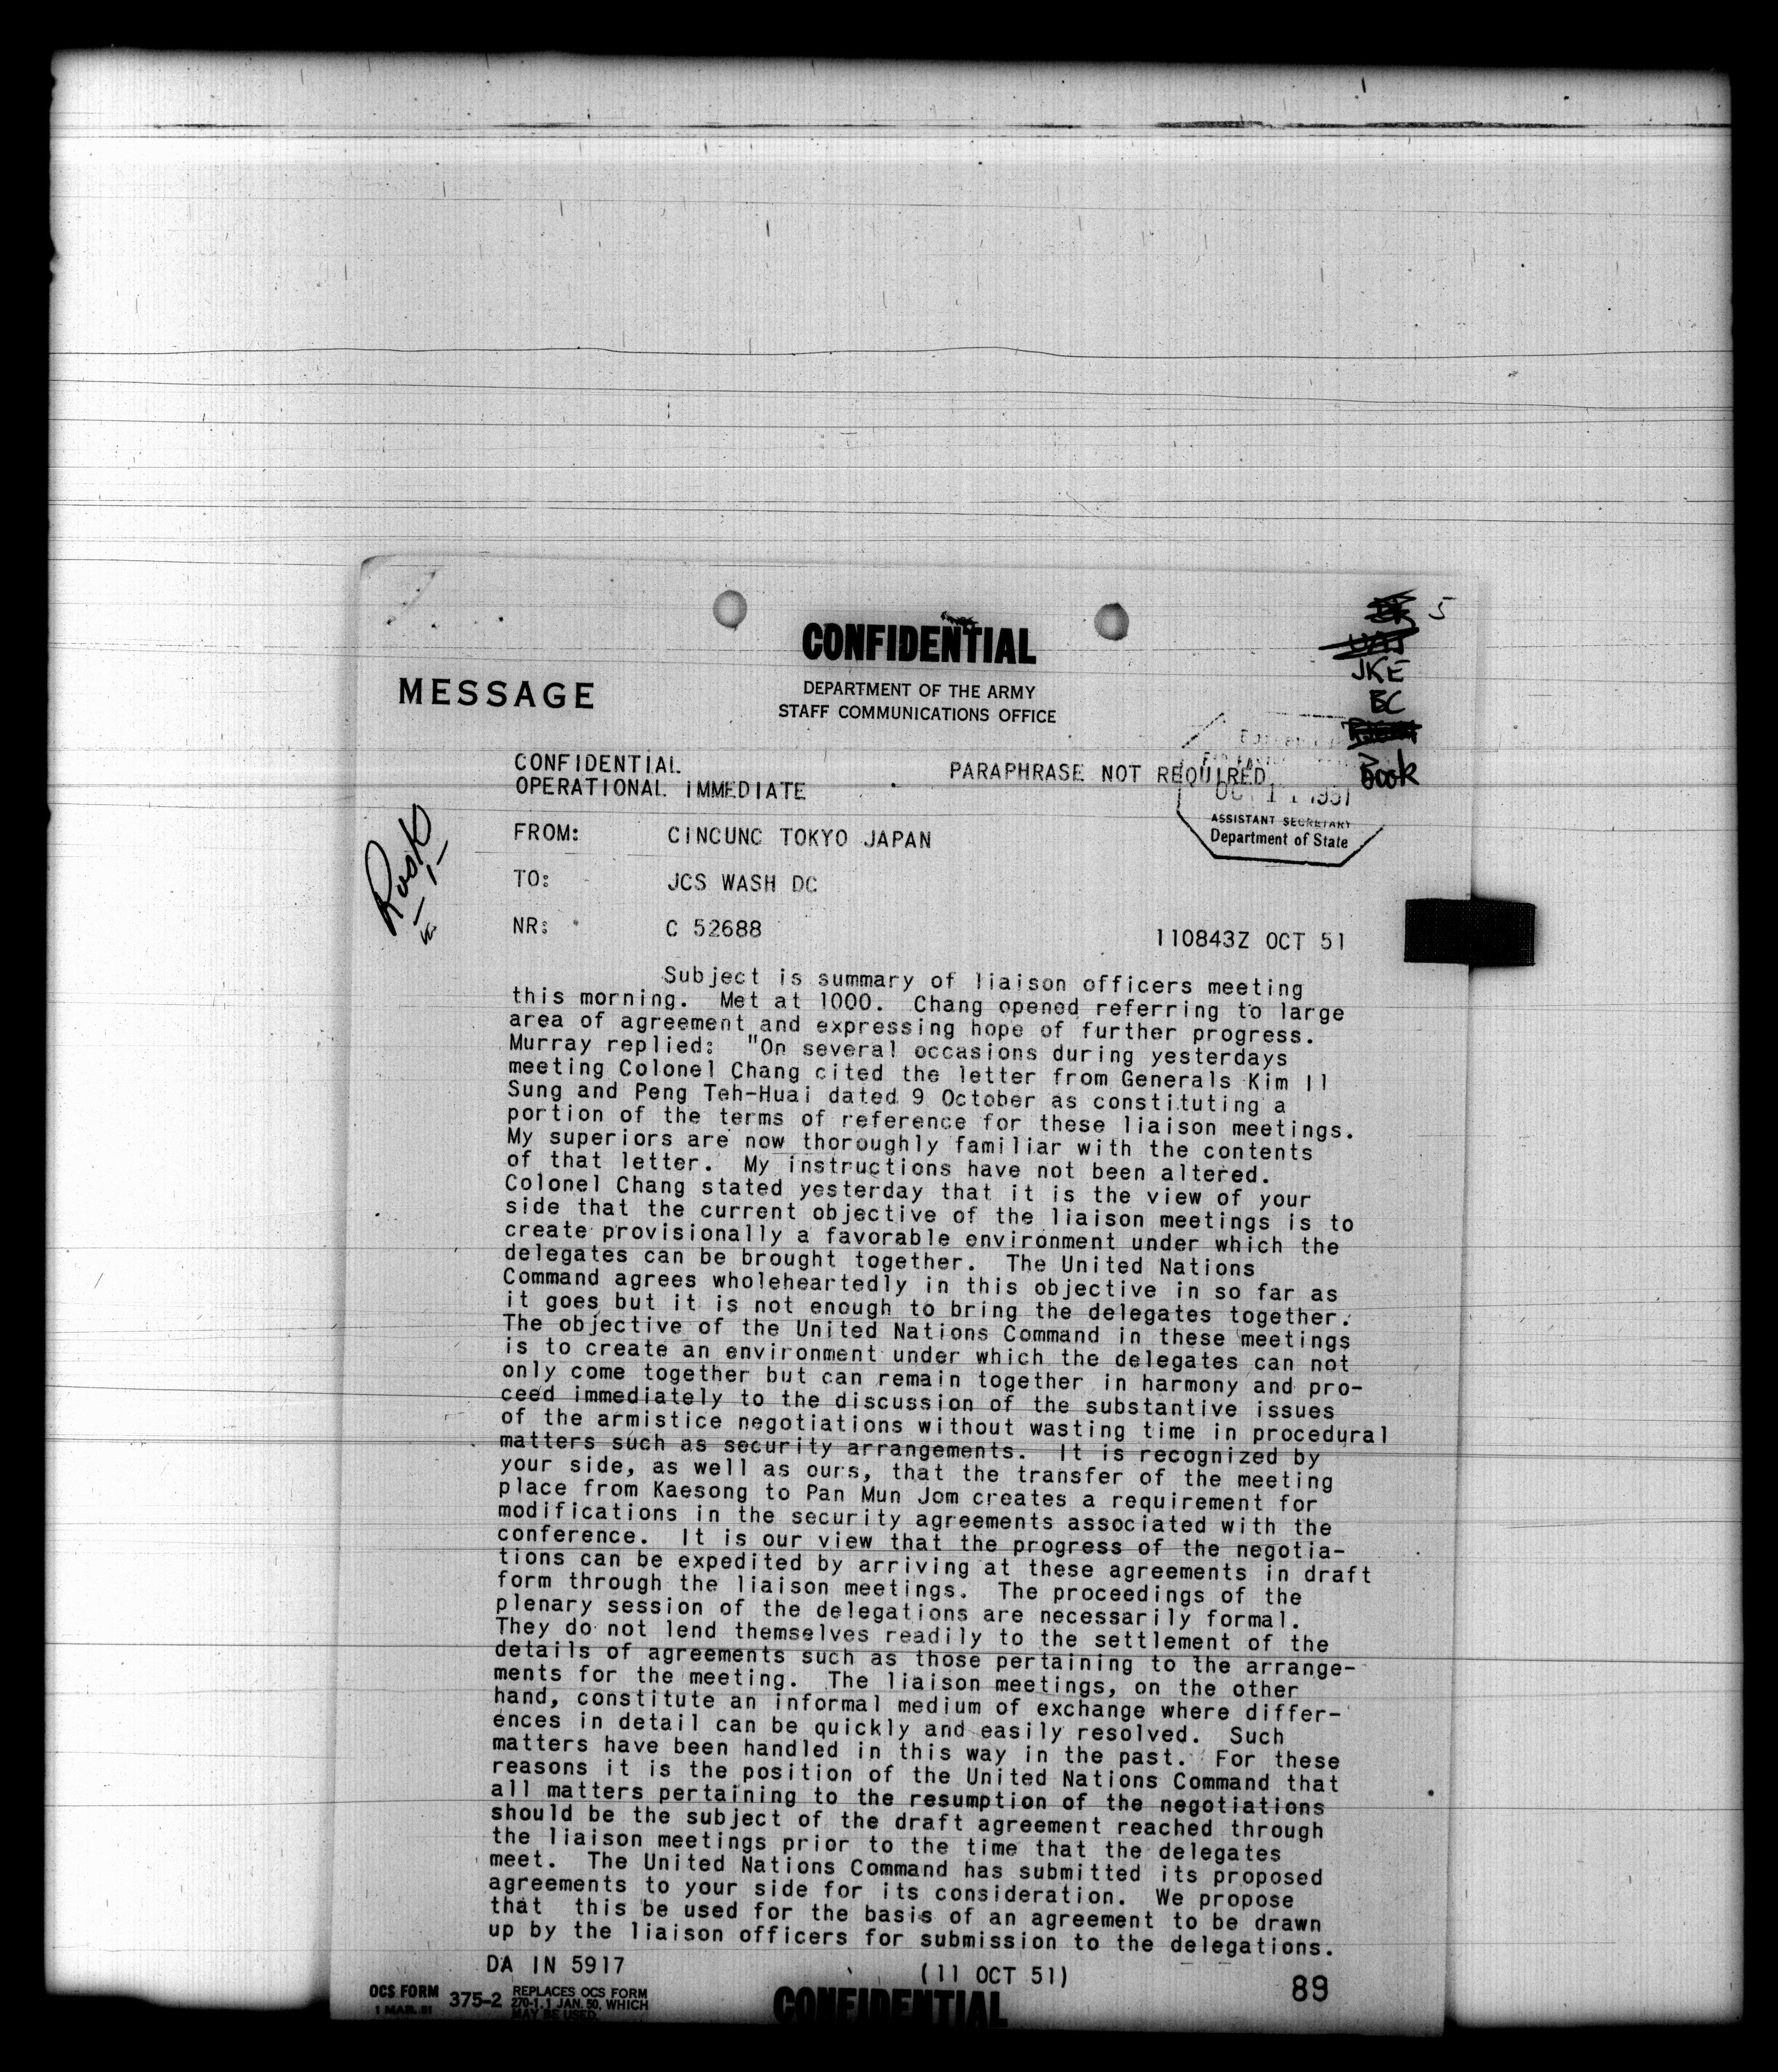 5
CONFIDENTIAL
JKE
MESSAGE
DEPARTMENT OF THE ARMY
STAFF COMMUNICATIONS OFFICE
BC
CONFIDENTIAL
OPERATIONAL IMMEDIATE
PARAPHRASE NOT REQUIRED
Book
OCT 11 1951
ASSISTANT SECRETARY
Department of State
Rusk
FROM: CINCUNC TOKYO JAPAN
TO: JCS WASH DC
NR: C 52688
110843Z OCT 51
Subject is summary of liaison officers meeting
this morning. Met at 1000. Chang opened referring to large
area of agreement and expressing hope of further progress.
Murray replied: "On several occasions during yesterdays
meeting Colonel Chang cited the letter from Generals Kim Il
Sung and Peng Teh-Huai dated 9 October as constituting a
portion of the terms of reference for these liaison meetings.
My superiors are now thoroughly familiar with the contents
of that letter. My instructions have not been altered.
Colonel Chang stated yesterday that it is the view of your
side that the current objective of the liaison meetings is to
create provisionally a favorable environment under which the
delegates can be brought together. The United Nations
Command agrees wholeheartedly in this objective in so far as
it goes but it is not enough to bring the delegates together.
The objective of the United Nations Command in these meetings
is to create an environment under which the delegates can not
only come together but can remain together in harmony and pro-
ceed immediately to the discussion of the substantive issues
of the armistice negotiations without wasting time in procedural
matters such as security arrangements. It is recognized by
your side, as well as ours, that the transfer of the meeting
place from Kaesong to Pan Mun Jom creates a requirement for
modifications in the security agreements associated with the
conference. It is our view that the progress of the negotia-
tions can be expedited by arriving at these agreements in draft
form through the liaison meetings. The proceedings of the
plenary session of the delegations are necessarily formal.
They do not lend themselves readily to the settlement of the
details of agreements such as those pertaining to the arrange-
ments for the meeting. The liaison meetings, on the other
hand, constitute an informal medium of exchange where differ-
ences in detail can be quickly and easily resolved. Such
matters have been handled in this way in the past. For these
reasons it is the position of the United Nations Command that
all matters pertaining to the resumption of the negotiations
should be the subject of the draft agreement reached through
the liaison meetings prior to the time that the delegates
meet. The United Nations Command has submitted its proposed
agreements to your side for its consideration. We propose
that this be used for the basis of an agreement to be drawn
up by the liaison officers for submission to the delegations.
DA IN 5917
(11 OCT 51)
89
OCS FORM
1 MAR. 51
375-2
REPLACES OCS FORM
270-1, 1 JAN. 50, WHICH
MAY BE USED.
CONFIDENTIAL